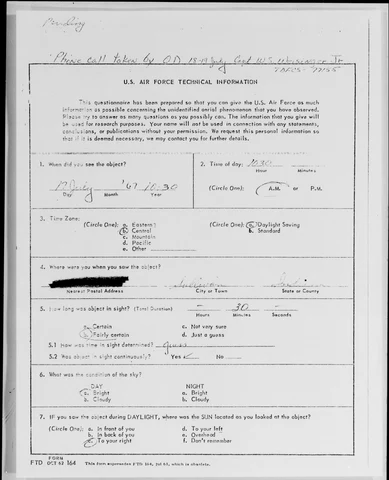 Phone call taken by OD 18-19 July Capt W.S.
U.S. AIR FORCE TECHNICAL INFORMATION
This questionnaire has been prepared so that you can give the U.S. Air Force as much
information as possible concerning the unidentified aerial phenomenon that you have observed.
Please try to answer as many questions as you possibly can. The information that you give will
be used for research purposes. Your name will not be used in connection with any statements,
conclusions, or publications without your permission. We request this personal information so
that if it is deemed necessary, we may contact you for further details.
1. When did you see the object? 2. Time of day: 10:30
Hour Minutes
July '67 10:30 (Circle One): A.M. or P.M.
Day Month Year
3. Time Zone:
(Circle One): a. Eastern (Circle One): a. Daylight Saving
b. Central b. Standard
c. Mountain
d. Pacific
e. Other
4. Where were you when you saw the object?
Sullivan
Nearest Postal Address City or Town State or County
5. How long was object in sight? (Total Duration) — 30 —
Hours Minutes Seconds
a. Certain c. Not very sure
b. Fairly certain d. Just a guess
5.1 How was time in sight determined? guess
5.2 Was object in sight continuously? Yes ✓ No
6. What was the condition of the sky?
DAY NIGHT
a. Bright a. Bright
b. Cloudy b. Cloudy
7. IF you saw the object during DAYLIGHT, where was the SUN located as you looked at the object?
(Circle One): a. In front of you d. To your left
b. In back of you e. Overhead
c. To your right f. Don't remember
FORM
FTD OCT 62 164 This form supersedes FTD 164, Jul 62, which is obsolete.